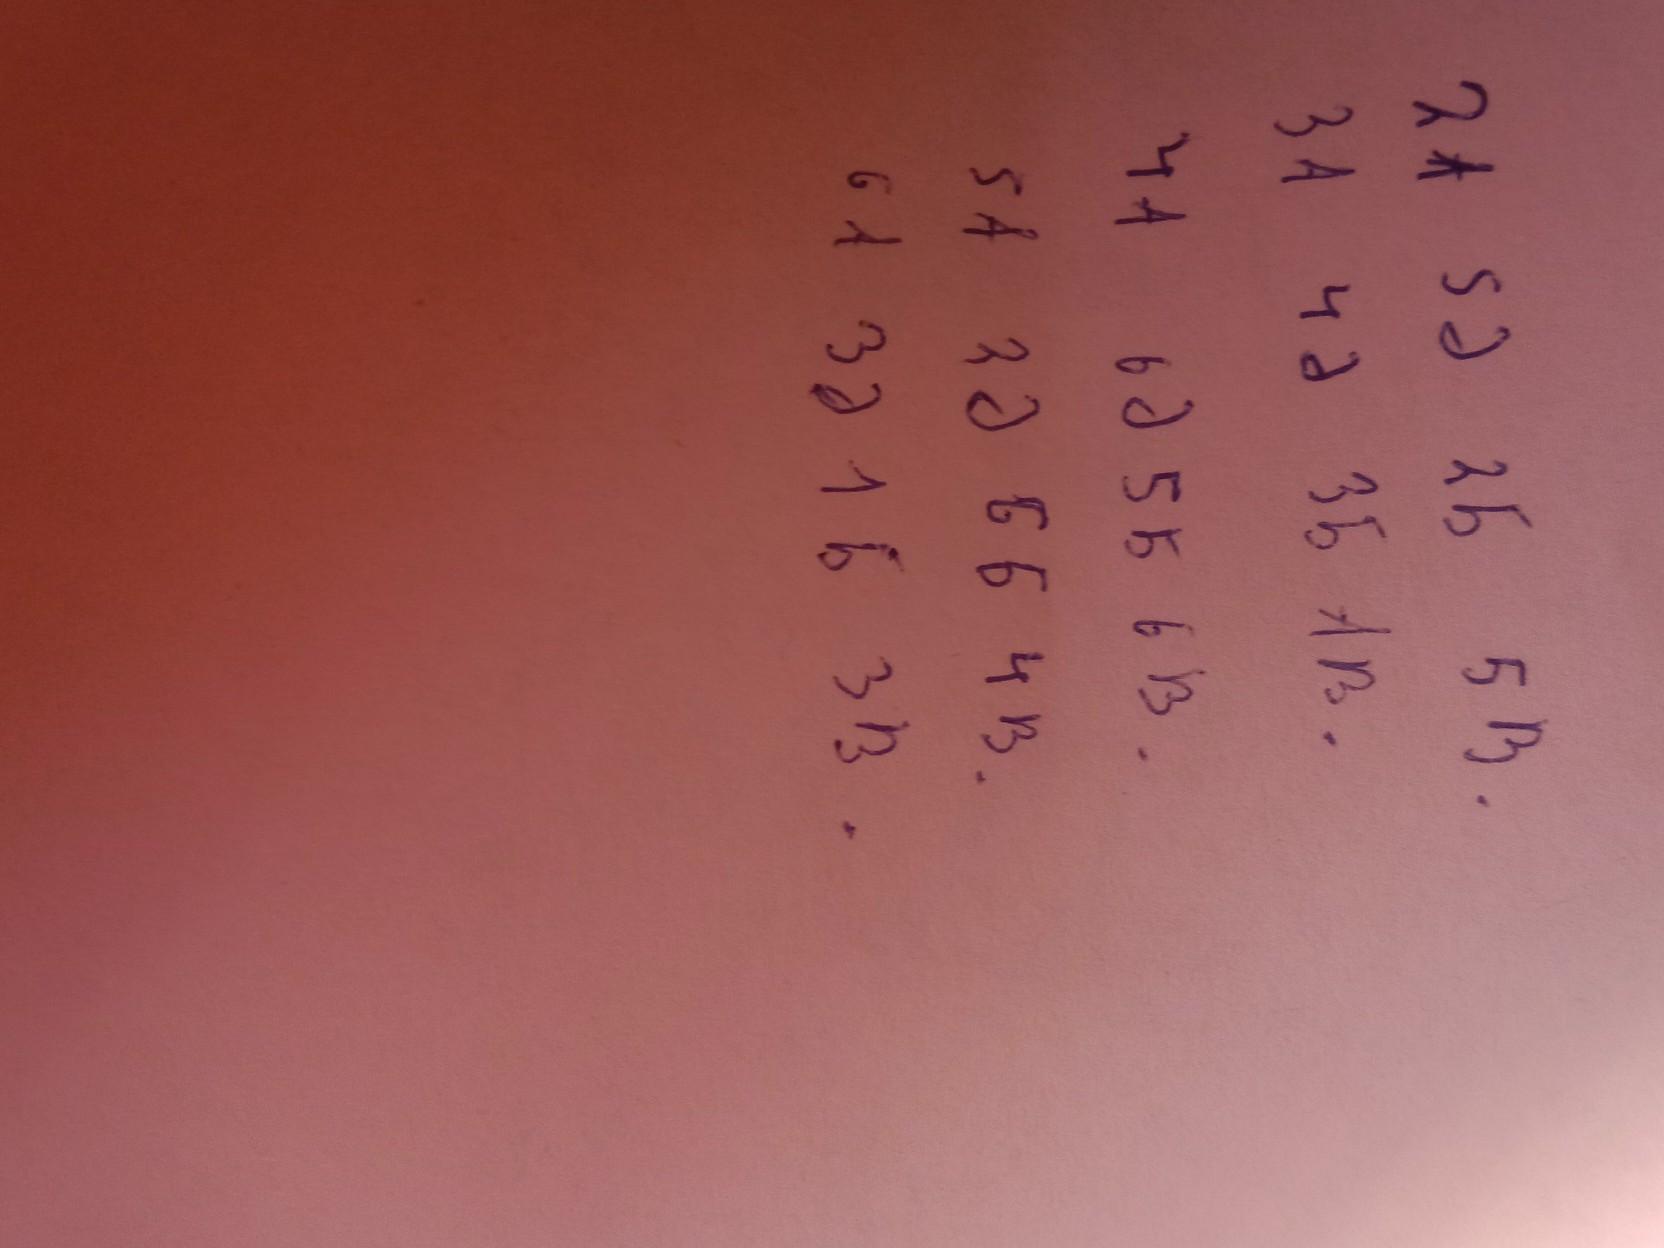 2А 5д 2Б 5В.
3А 4д 3Б 1В.
4А 6д 5Б 6В.
5А 2д 6Б 4В.
6А 3д 1Б 3В.